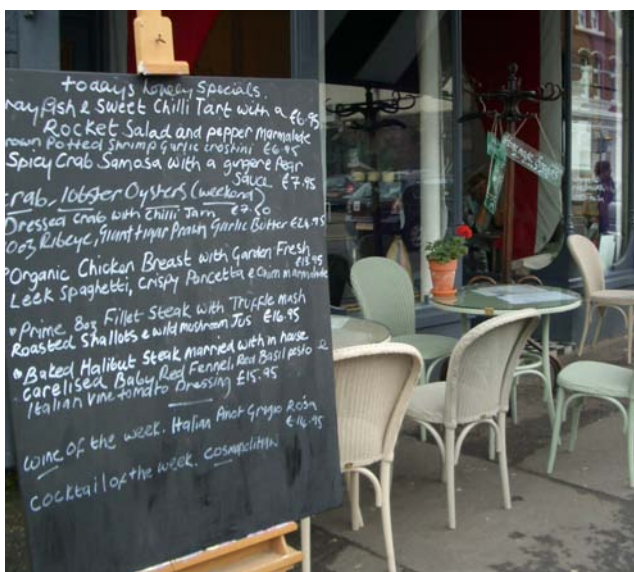 todays lovely Specials.
rayfish & Sweet Chilli Tart with a £6.95
Rocket Salad and pepper marmalade
rown Potted Shrimp Garlic crostini £6.95
Spicy Crab Samosa with a gingere Pear
Sauce £7.95
crab, lobster Oysters (weekend)
Dressed crab with Chilli Jam £7.50
0oz Ribeye, Giant tiger Prawn Garlic Butter £24.95
Organic Chicken Breast with Garden Fresh
Leek Spaghetti, Crispy Pancetta, e marmalade £15.95
Prime 8oz Fillet Steak with Truffle mash
Roasted Shallots e wild mushroom Jus £16.95
Baked Halibut Steak married with in house
carelised Baby Red Fennel, Red Basil pesto e
Italian vine tomato Dressing £15.95
wine of the week. Italian Pinot Grigio
£14.95
cocktail of the week. cosmopolitan